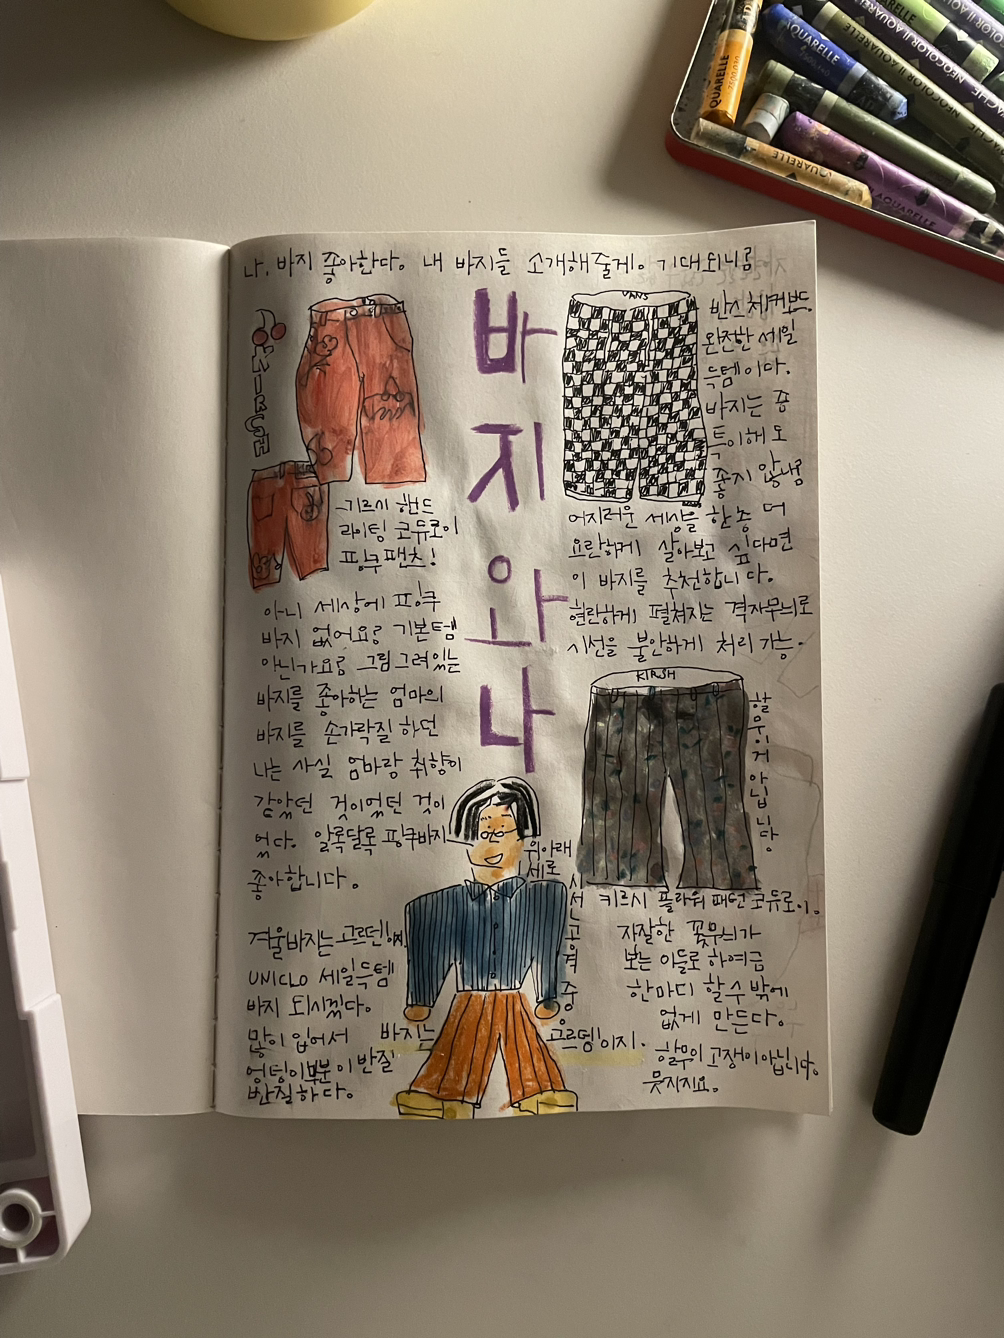 나, 바지 좋아한다. 내 바지들 소개해줄게. 기대되니?
바
지
와
나
KIRSH
키르시 핸드
라이팅 코듀로이
핑쿠팬츠!
아니 세상에 핑쿠
바지 없어요? 기본템
아닌가요? 그림그려있는
바지를 좋아하는 엄마의
바지를 손가락질 하던
나는 사실 엄마랑 취향이
같았던 것이었던 것이
었다. 알록달록 핑쿠바지
좋아합니다.
겨울바지는 고르덴!
UNICLO 세일득템
바지 되시겠다.
많이 입어서
엉덩이 부분이 반질
반질하다.
VANS
반스체커보드
완전한 세일
득템이다.
바지는 좀
특이해도
좋지 않냠
어지러운 세상을 한층 더
요란하게 살아보고 싶다면
이 바지를 추천합니다.
현란하게 펼쳐지는 격자무늬로
시선을 불안하게 처리 가능.
KIRSH
할무이거 아닙니다
키르시 플라워 패턴 코듀로이.
자잘한 꽃무늬가
보는 이들로 하여금
한마디 할 수 밖에
없게 만든다.
할무이 고쟁이 아닙니다.
뭇지지요.
위아래
세로
바지는
고르뎅이지.
QUARELLE
AQUARELLE
NEOCOLOR II AQUARELLE
AQUARELLE
AQUARELLE